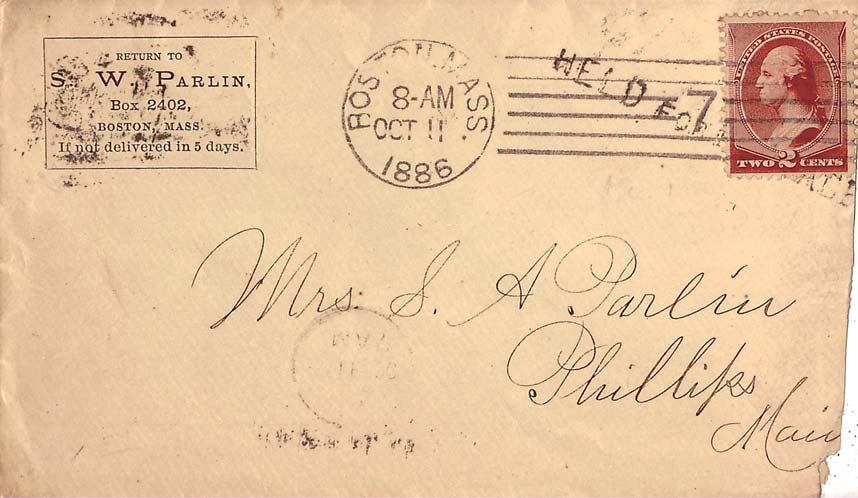 RETURN TO
S. W. PARLIN,
Box 2402,
BOSTON, MASS.
If not delivered in 5 days.
BOSTON, MASS
8-AM
OCT 11
1886
HELD FOR
7
UNITED STATES POSTAGE
TWO 2 CENTS
Mrs. S. A Parlin
Phillips
Main
AM